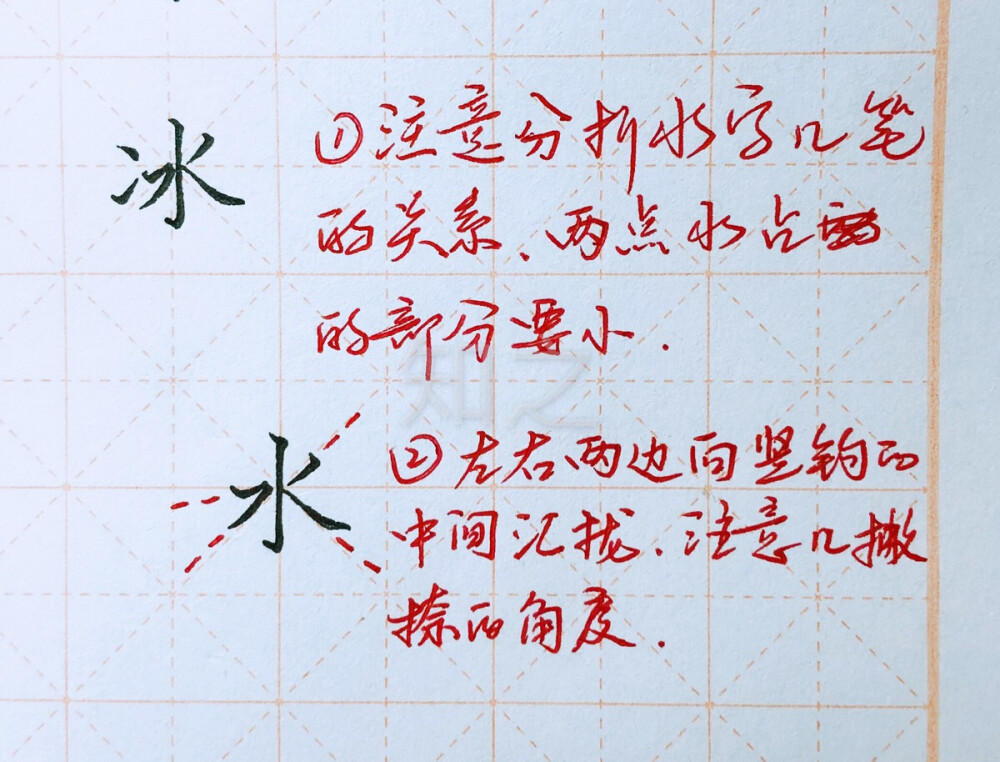 冰
①注意分析水字几笔
的关系、两点水占
的部分要小.
知之
水
②左右两边向竖钩的
中间汇拢、注意几撇
捺的角度.